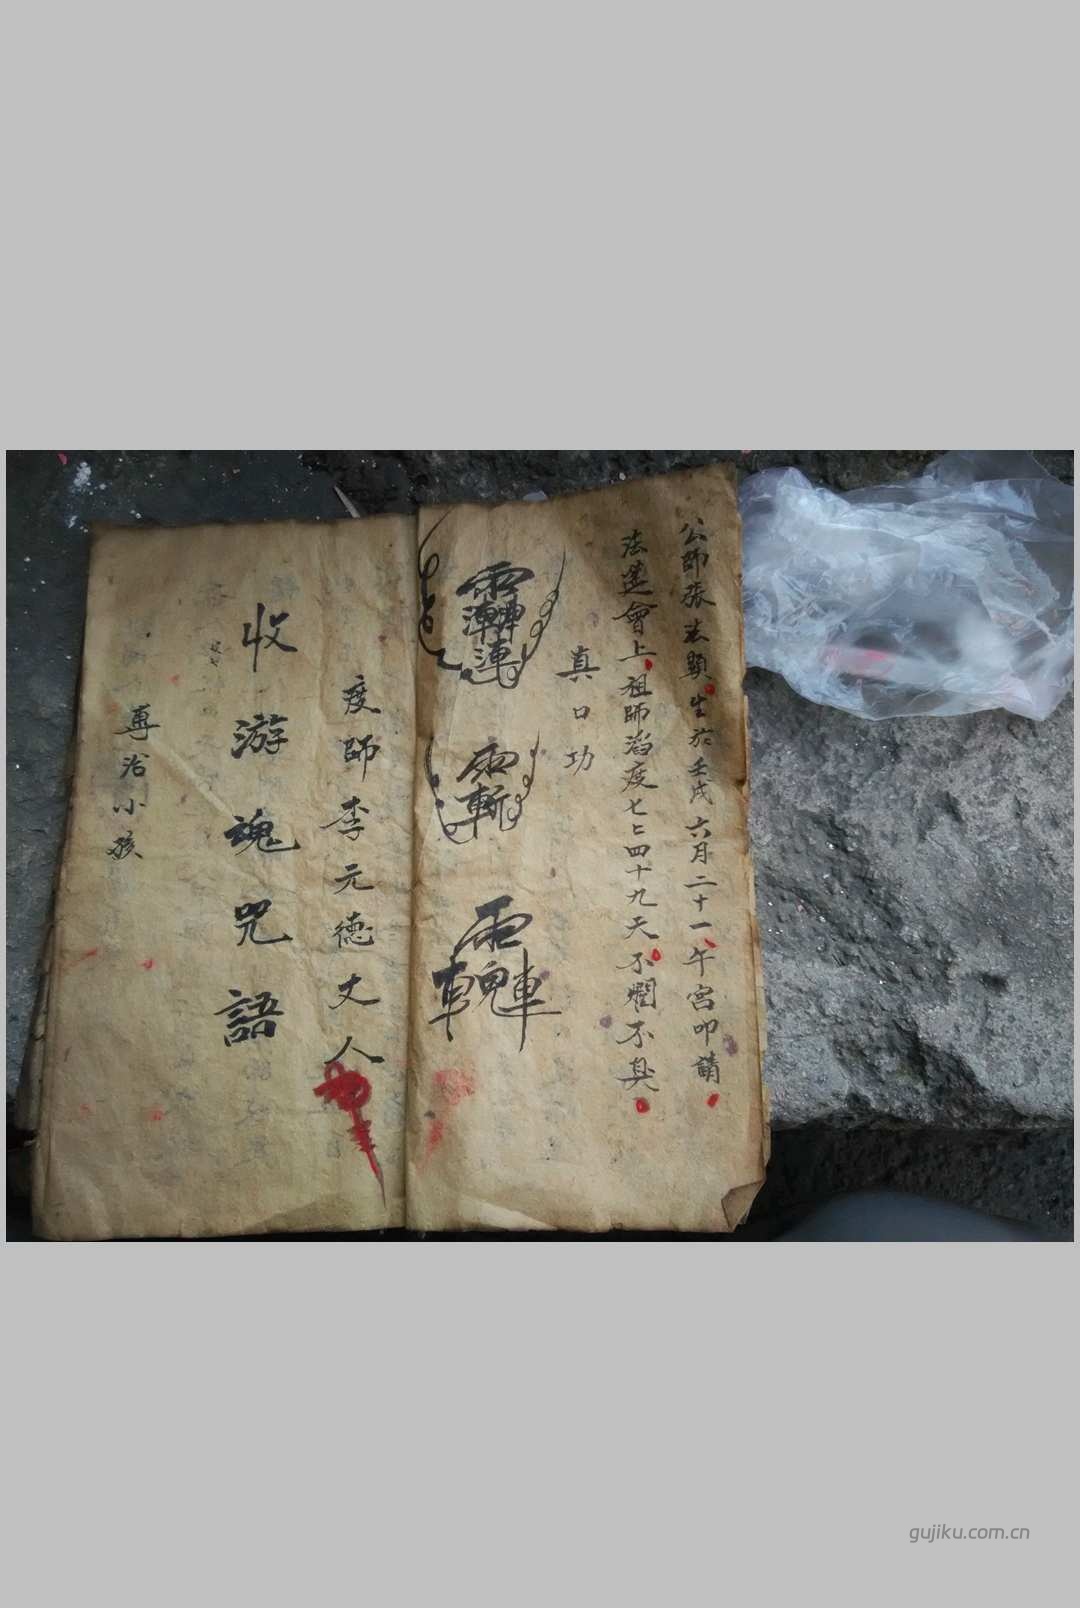 公師張法顯生於壬戌六月二十一午宮叩請
法蓮會上祖師滔度七七四十九天不爛不臭
真口功
度師李元德丈人
收游魂咒語
專治小孩
gujiku.com.cn